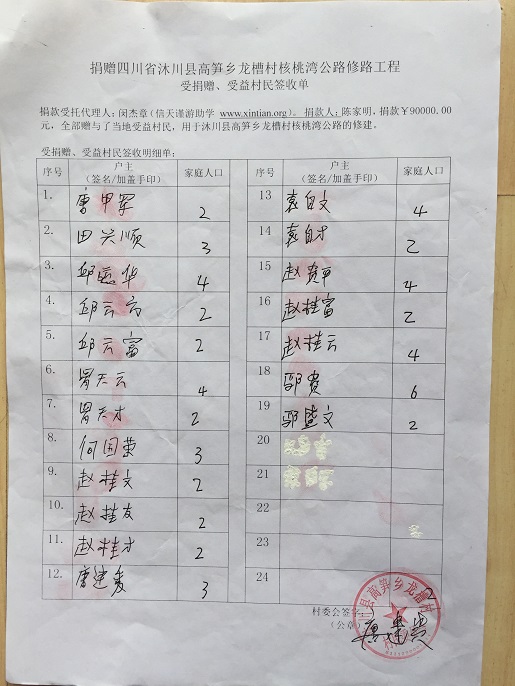 捐赠四川省沐川县高笋乡龙槽村核桃湾公路修路工程
受捐赠、受益村民签收单
捐款受托代理人：闵杰章（信天谨游助学 www.xintian.org）。捐款人：陈家明，捐款￥90000.00
元，全部赠与了当地受益村民，用于沐川县高笋乡龙槽村核桃湾公路的修建。
受捐赠、受益村民签收明细单：
序号 户主（签名/加盖手印） 家庭人口
1. 唐甲军 2
2. 田兴顺 3
3. 邱 华 4
4. 邱云 2
5. 邱云富 2
6. 胃天云 4
7. 胃天才 2
8. 何国荣 3
9. 赵桂文 2
10. 赵桂友 2
11. 赵桂才 2
12. 唐建 3
序号 户主（签名/加盖手印） 家庭人口
13 袁自文 4
14 袁自才 2
15 赵贵平 4
16 赵桂富 2
17 赵桂云 4
18 鄢贵 6
19 鄢 文 2
20
21
22
23
24
村委会签
（公章）
唐建贵
川县高笋乡龙槽村